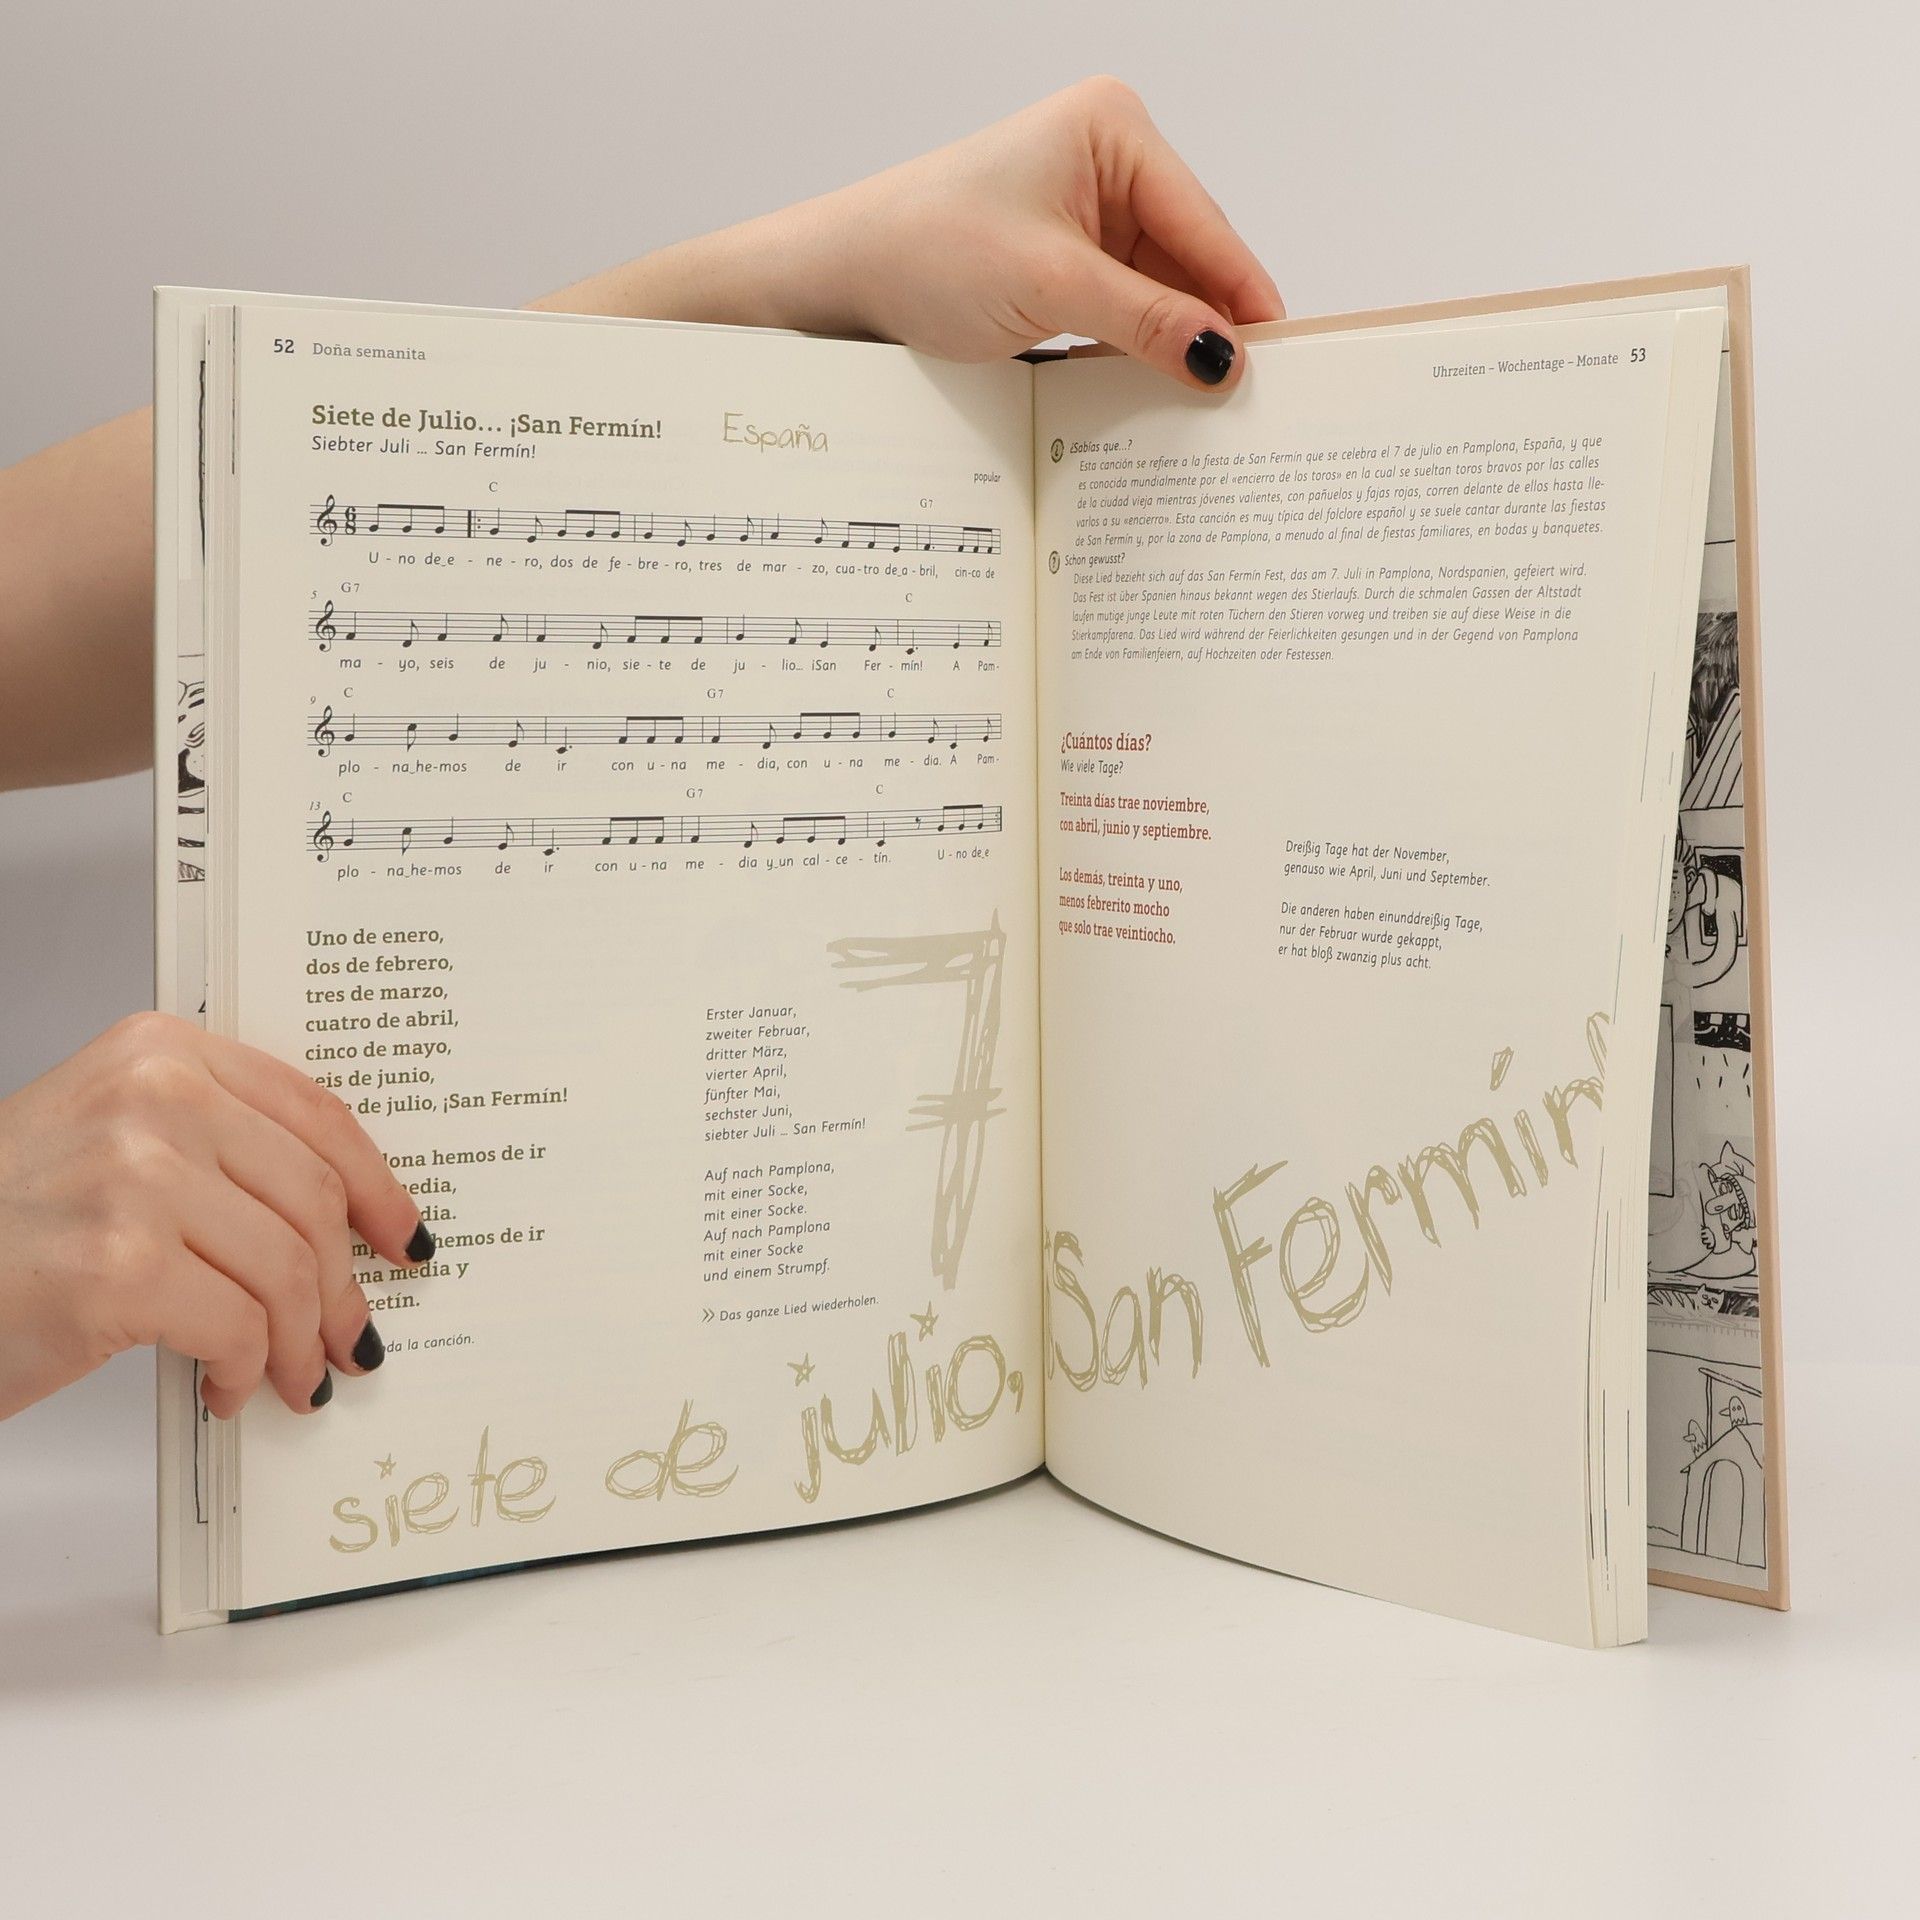 52 Doña semanita
Siete de Julio... ¡San Fermín!
Siebter Juli ... San Fermín!
España
popular
C G7
U - no de‿e - ne - ro, dos de fe - bre - ro, tres de mar - zo, cua - tro de‿a - bril, cin - co de
5 G7 C
ma - yo, seis de ju - nio, sie - te de ju - lio... ¡San Fer - mín! A Pam -
9 C G7 C
plo - na‿he-mos de ir con u - na me - dia, con u - na me - dia. A Pam -
13 C G7 C
plo - na‿he-mos de ir con u - na me - dia y‿un cal - ce - tín. U - no de‿e
Uno de enero,
dos de febrero,
tres de marzo,
cuatro de abril,
cinco de mayo,
de junio,
de julio, ¡San Fermín!
hemos de ir
hemos de ir
media y
la canción.
Erster Januar,
zweiter Februar,
dritter März,
vierter April,
fünfter Mai,
sechster Juni,
siebter Juli ... San Fermín!
Auf nach Pamplona,
mit einer Socke,
mit einer Socke.
Auf nach Pamplona
mit einer Socke
und einem Strumpf.
>> Das ganze Lied wiederholen.
7
siete de julio, ¡San Fermín!
Uhrzeiten – Wochentage – Monate 53
¿Sabías que...?
Esta canción se refiere a la fiesta de San Fermín que se celebra el 7 de julio en Pamplona, España, y que
es conocida mundialmente por el «encierro de los toros» en la cual se sueltan toros bravos por las calles
de la ciudad vieja mientras jóvenes valientes, con pañuelos y fajas rojas, corren delante de ellos hasta lle-
varlos a su «encierro». Esta canción es muy típica del folclore español y se suele cantar durante las fiestas
de San Fermín y, por la zona de Pamplona, a menudo al final de fiestas familiares, en bodas y banquetes.
Schon gewusst?
Diese Lied bezieht sich auf das San Fermín Fest, das am 7. Juli in Pamplona, Nordspanien, gefeiert wird.
Das Fest ist über Spanien hinaus bekannt wegen des Stierlaufs. Durch die schmalen Gassen der Altstadt
laufen mutige junge Leute mit roten Tüchern den Stieren vorweg und treiben sie auf diese Weise in die
Stierkampfarena. Das Lied wird während der Feierlichkeiten gesungen und in der Gegend von Pamplona
am Ende von Familienfeiern, auf Hochzeiten oder Festessen.
¿Cuántos días?
Wie viele Tage?
Treinta días trae noviembre,
con abril, junio y septiembre.
Los demás, treinta y uno,
menos febrerito mocho
que solo trae veintiocho.
Dreißig Tage hat der November,
genauso wie April, Juni und September.
Die anderen haben einunddreißig Tage,
nur der Februar wurde gekappt,
er hat bloß zwanzig plus acht.